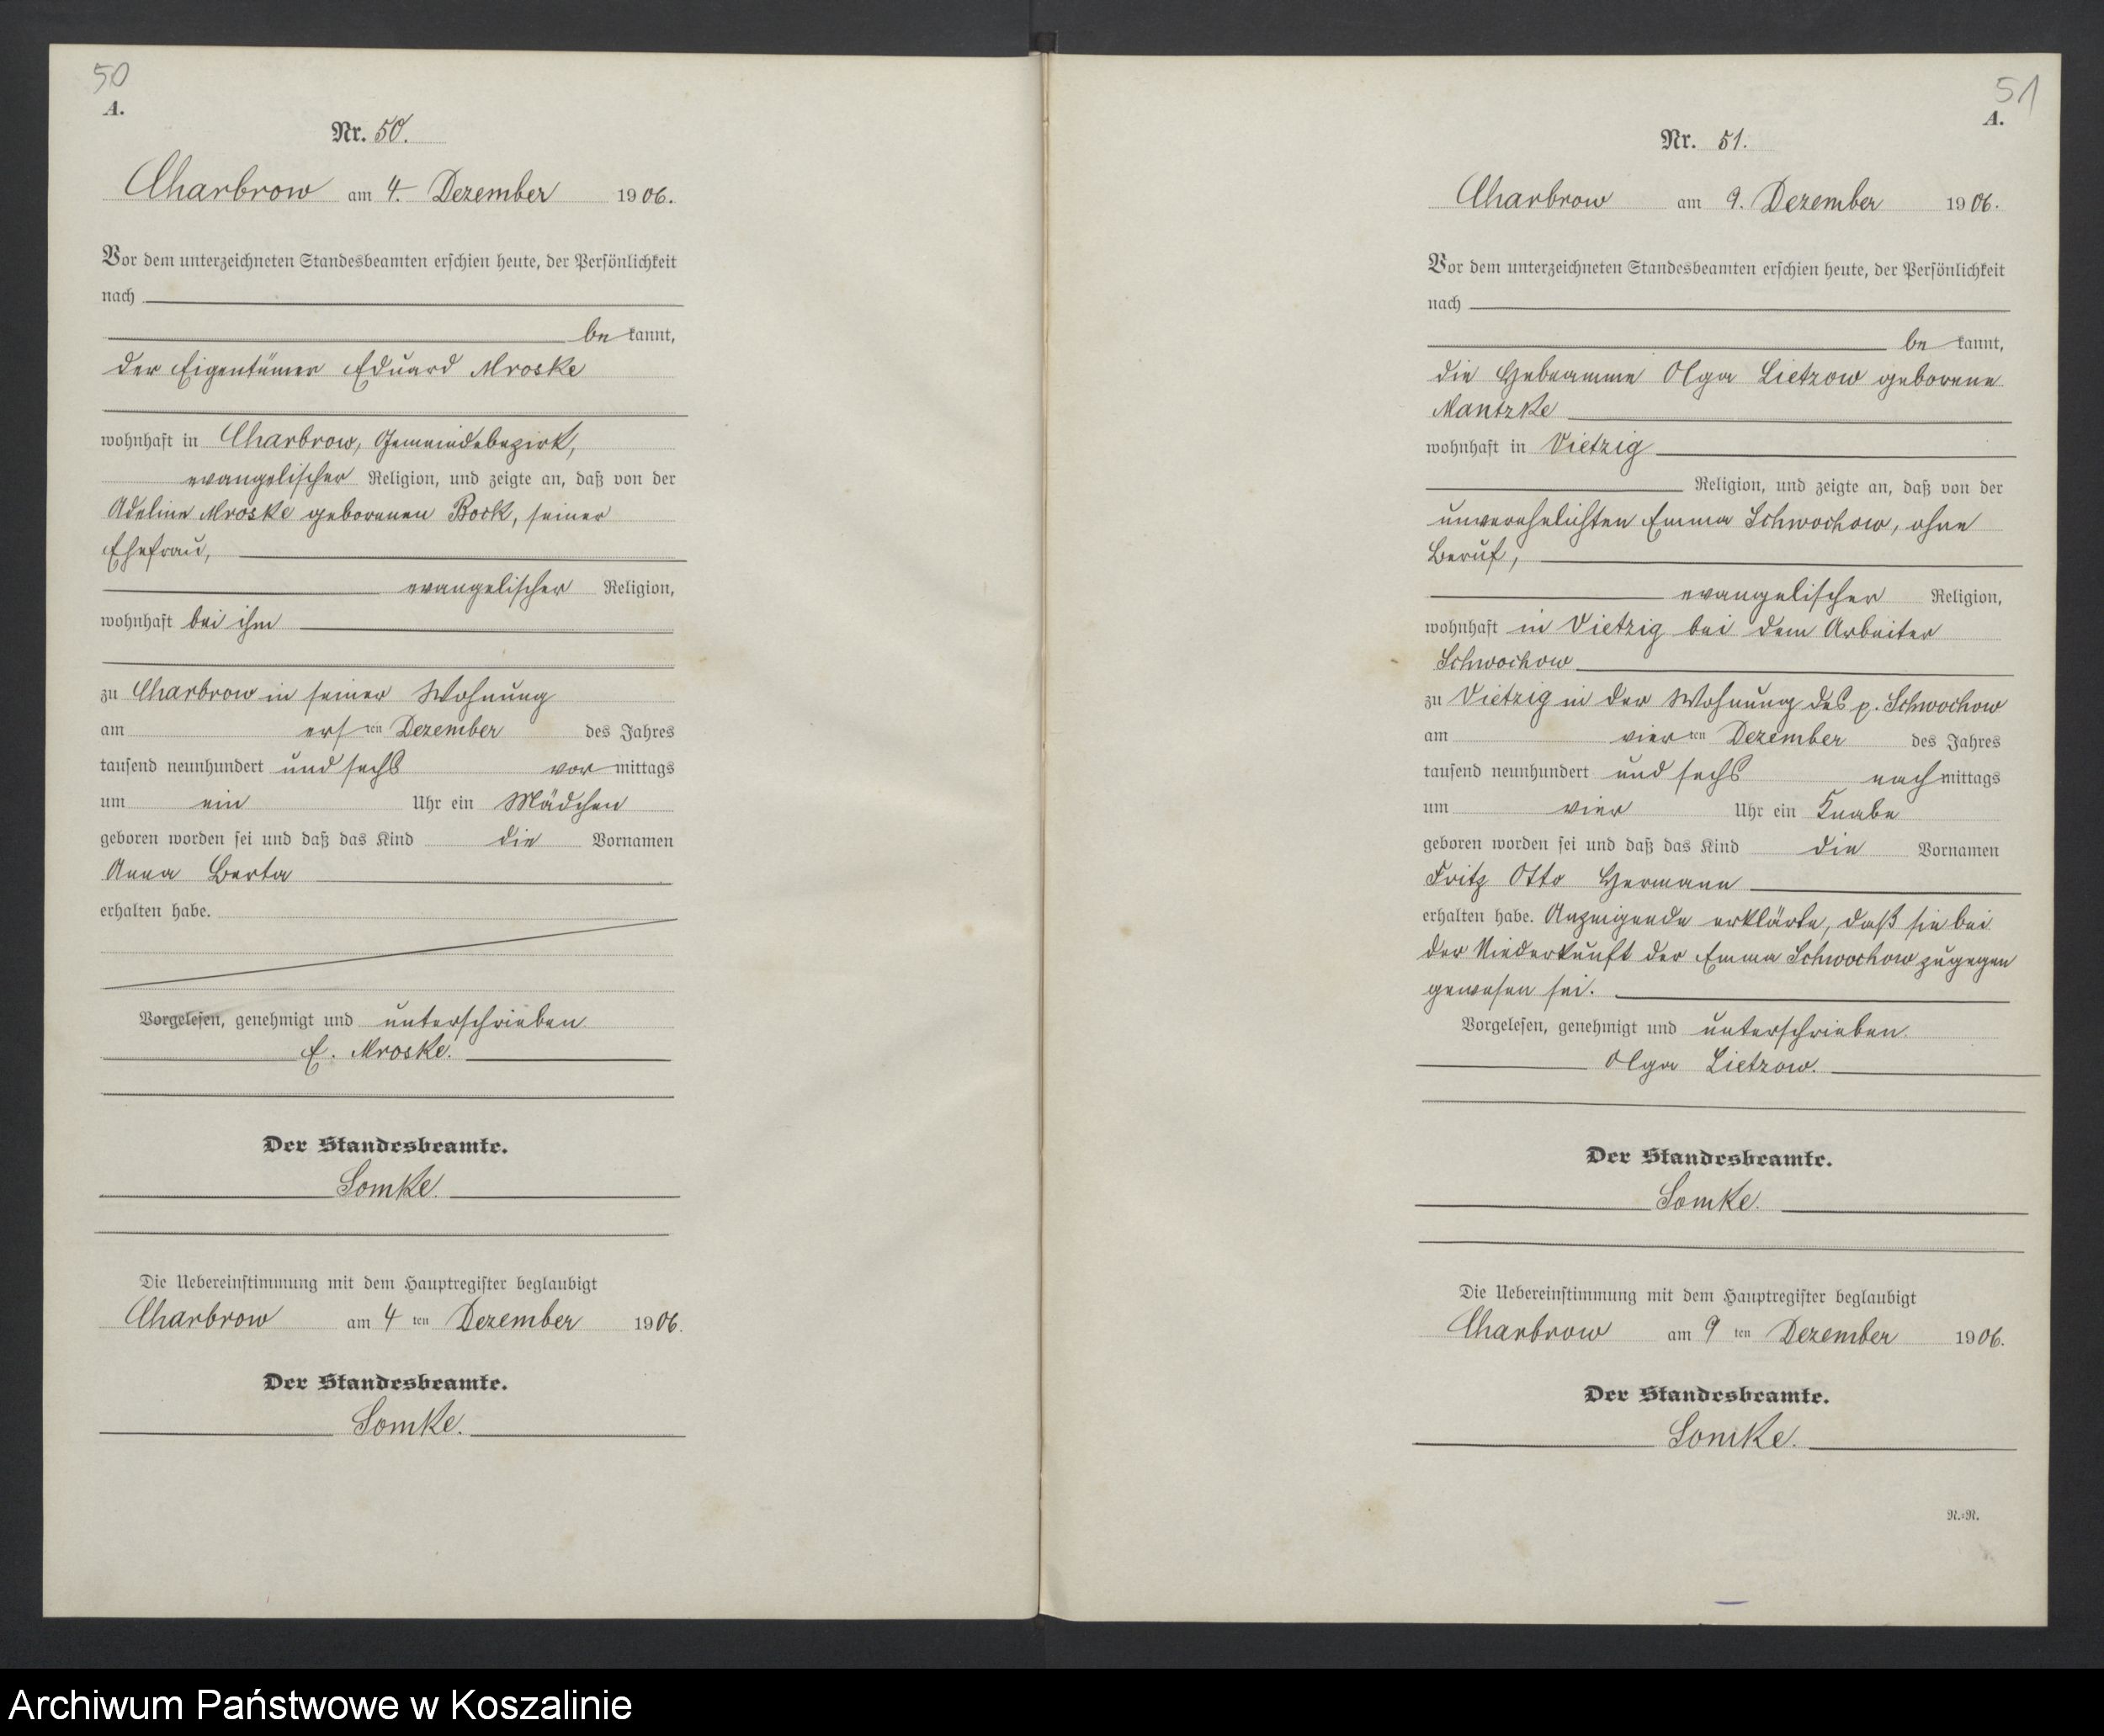 50
A.
Nr. 50.
Charbrow am 4. Dezember 1906.
Vor dem unterzeichneten Standesbeamten erschien heute, der Persönlichkeit
nach
be kannt,
der Eigentümer Eduard Mroske
wohnhaft in Charbrow, Gemeindebezirk,
evangelischer Religion, und zeigte an, daß von der
Adeline Mroske geborenen Bock, seiner
Ehefrau,
evangelischer Religion,
wohnhaft bei ihm
zu Charbrow in seiner Wohnung
am ersten Dezember des Jahres
tausend neunhundert und sechs vormittags
um ein Uhr ein Mädchen
geboren worden sei und daß das Kind die Vornamen
Anna Berta
erhalten habe.
Vorgelesen, genehmigt und unterschrieben
E. Mroske.
Der Standesbeamte.
Somke.
Die Uebereinstimmung mit dem Hauptregister beglaubigt
Charbrow am 4 ten Dezember 1906.
Der Standesbeamte.
Somke.
51
A.
Nr. 51.
Charbrow am 9. Dezember 1906.
Vor dem unterzeichneten Standesbeamten erschien heute, der Persönlichkeit
nach
be kannt,
die Hebeamme Olga Lietzow geborene
Mantzke
wohnhaft in Vietzig
Religion, und zeigte an, daß von der
unverehelichten Emma Schwochow, ohne
Beruf,
evangelischer Religion,
wohnhaft in Vietzig bei dem Arbeiter
Schwochow
zu Vietzig in der Wohnung des p. Schwochow
am vierten Dezember des Jahres
tausend neunhundert und sechs nachmittags
um vier Uhr ein Knabe
geboren worden sei und daß das Kind die Vornamen
Fritz Otto Hermann
erhalten habe. Anzeigende erklärte, daß sie bei
der Niederkunft der Emma Schwochow zugegen
gewesen sei.
Vorgelesen, genehmigt und unterschrieben.
Olga Lietzow.
Der Standesbeamte.
Somke.
Die Uebereinstimmung mit dem Hauptregister beglaubigt
Charbrow am 9 ten Dezember 1906.
Der Standesbeamte.
Somke.
N.=R.
Archiwum Państwowe w Koszalinie